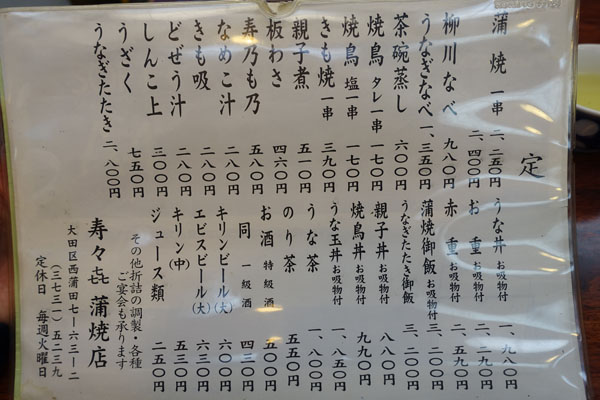 定
蒲焼 一串 二、二五〇円
二、四〇〇円
柳川なべ 九八〇円
うなぎなべ 一、三五〇円
茶碗蒸し 六〇〇円
焼鳥 タレ一串 一七〇円
焼鳥 塩一串 一七〇円
きも焼 一串 三九〇円
親子煮 五一〇円
板わさ 四六〇円
寿乃も乃 五八〇円
なめこ汁 二八〇円
きも吸 二八〇円
どぜう汁 二八〇円
しんこ上 三〇〇円
うざく 七五〇円
うなぎたたき 二、八〇〇円
うな丼 お吸物付 一、九八〇円
お重 お吸物付 二、二九〇円
赤重 お吸物付 二、五九〇円
蒲焼御飯 お吸物付 三、二〇〇円
うなぎたたき御飯 三、二〇〇円
親子丼 お吸物付 八八〇円
焼鳥丼 お吸物付 九九〇円
うな玉丼 お吸物付 一、八五〇円
うな茶 一、八〇〇円
のり茶 五五〇円
お酒 特級酒 五〇〇円
同 一級酒 四三〇円
キリンビール(大) 六〇〇円
エビスビール(大) 六三〇円
キリン(中) 五三〇円
ジュース類 二五〇円
その他折詰の調製・各種
ご宴会も承ります
寿々㐂 蒲焼店
大田区西蒲田七ー六三ー二
(三七三一)五二三九
定休日 毎週火曜日